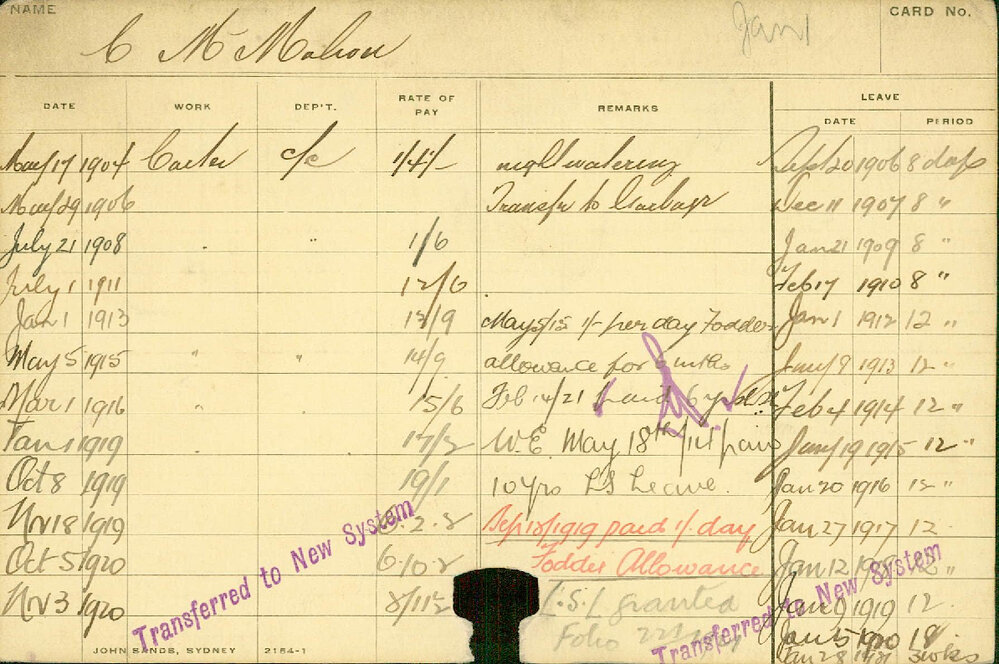 NAME
C McMahon
Jan 1
CARD No.
DATE WORK DEP'T. RATE OF PAY REMARKS LEAVE
DATE PERIOD
May 17 1904 Carter c/c night watering Sept 20 1906 8 days
May 29 1906 Transfer to Garbage Dec 11 1907 8 "
July 21 1908 " " 1/6 Jan 21 1909 8 "
July 1 1911 12/6 Feb 17 1910 8 "
Jan 1 1913 13/9 May 5/15 1/- per day Fodder Jan 1 1912 12 "
May 5 1915 " " 14/9 allowance for 6 mths 1913 12 "
Mar 1 1916 " 15/6 Feb 14/21 paid 6 Feb 4 1914 12 "
Jan 1 1919 17/2 W.E. May 18th/14 paid 1915 12 "
Oct 8 1919 19/1 10 yrs LS Leave. Jan 20 1916 12 "
Nov 18 1919 2.2 Sep 18/1919 paid 1/. day Jan 27 1917 12 "
Oct 5 1920 6.10.2 Fodder Allowance Jan 12
Nov 3 1920 L.S.L granted Jan 1919 12
Folio Jan 1920 18
Jan 28 3 wks
Transferred to New System
Transferred to New System
JOHN SANDS, SYDNEY 2164-1